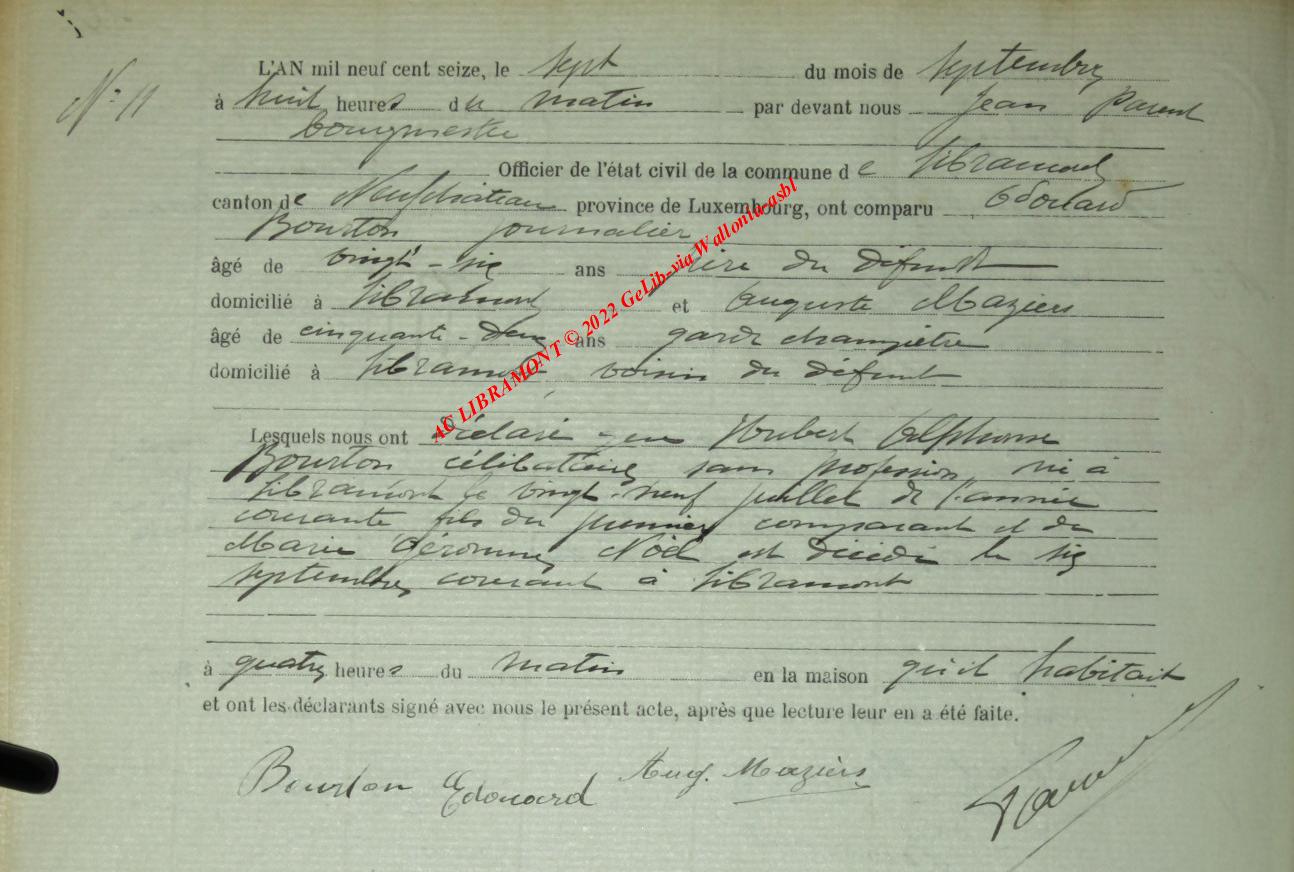 L'AN mil neuf cent seize, le sept du mois de septembre
N° 11
à huit heures du matin par devant nous Jean Parent
bourgmestre
Officier de l'état civil de la commune de Libramont
canton de Neufchâteau province de Luxembourg, ont comparu Edouard
Bourton journalier
âgé de vingt-six ans père du défunt
domicilié à Libramont et Auguste Maziers
âgé de cinquante-deux ans garde champêtre
domicilié à Libramont voisin du défunt
AC LIBRAMONT © 2022 GeLib-via Wallonia-asbl
Lesquels nous ont déclaré que Hubert Alphonse
Bourton célibataire sans profession né à
Libramont le vingt-neuf juillet de l'année
courante fils du premier comparant et de
Marie Noël est décédé le six
septembre courant à Libramont
à quatre heures du matin en la maison qu'il habitait
et ont les déclarants signé avec nous le présent acte, après que lecture leur en a été faite.
Bourton Edouard Aug. Maziers Parent